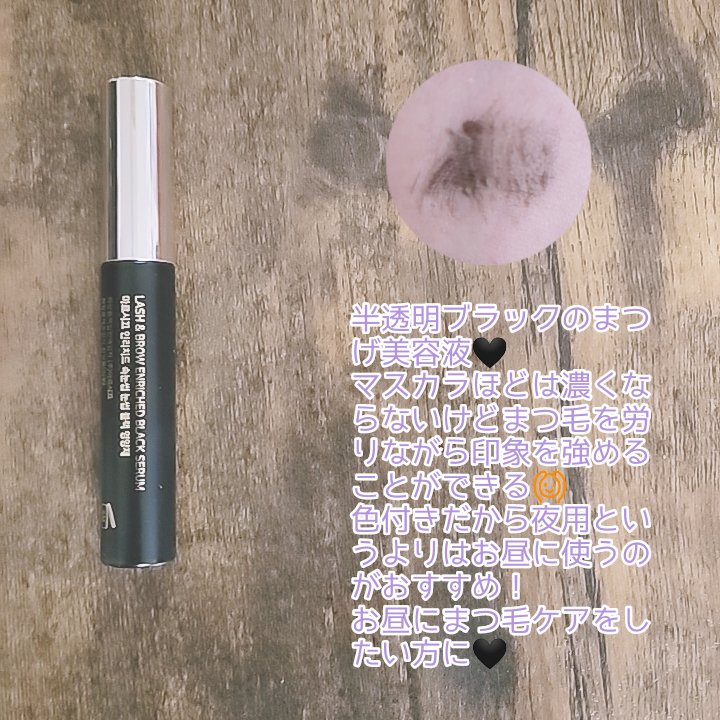 LASH & BROW ENRICHED BLACK SERUM
半透明ブラックのまつ
げ美容液🖤
マスカラほどは濃くな
らないけどまつ毛を労
りながら印象を強める
ことができる🙆
色付きだから夜用とい
うよりはお昼に使うの
がおすすめ！
お昼にまつ毛ケアをし
たい方に🖤